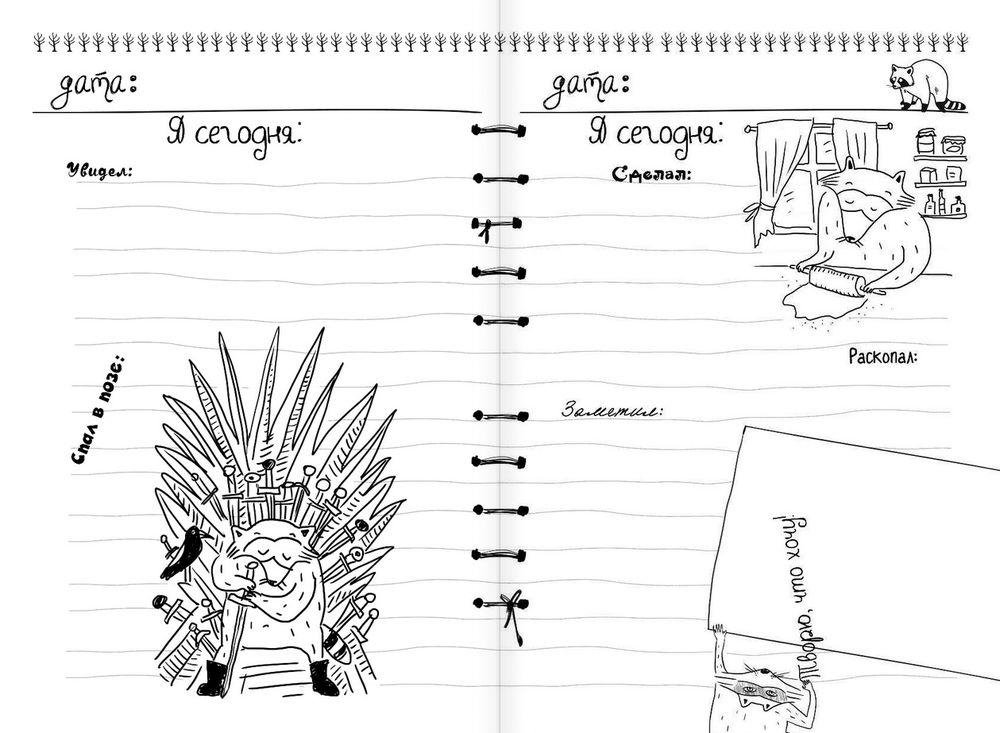 дата:
Я сегодня:
Увидел:
Спал в позе:
дата:
Я сегодня:
Сделал:
Раскопал:
Заметил:
Творю, что хочу!